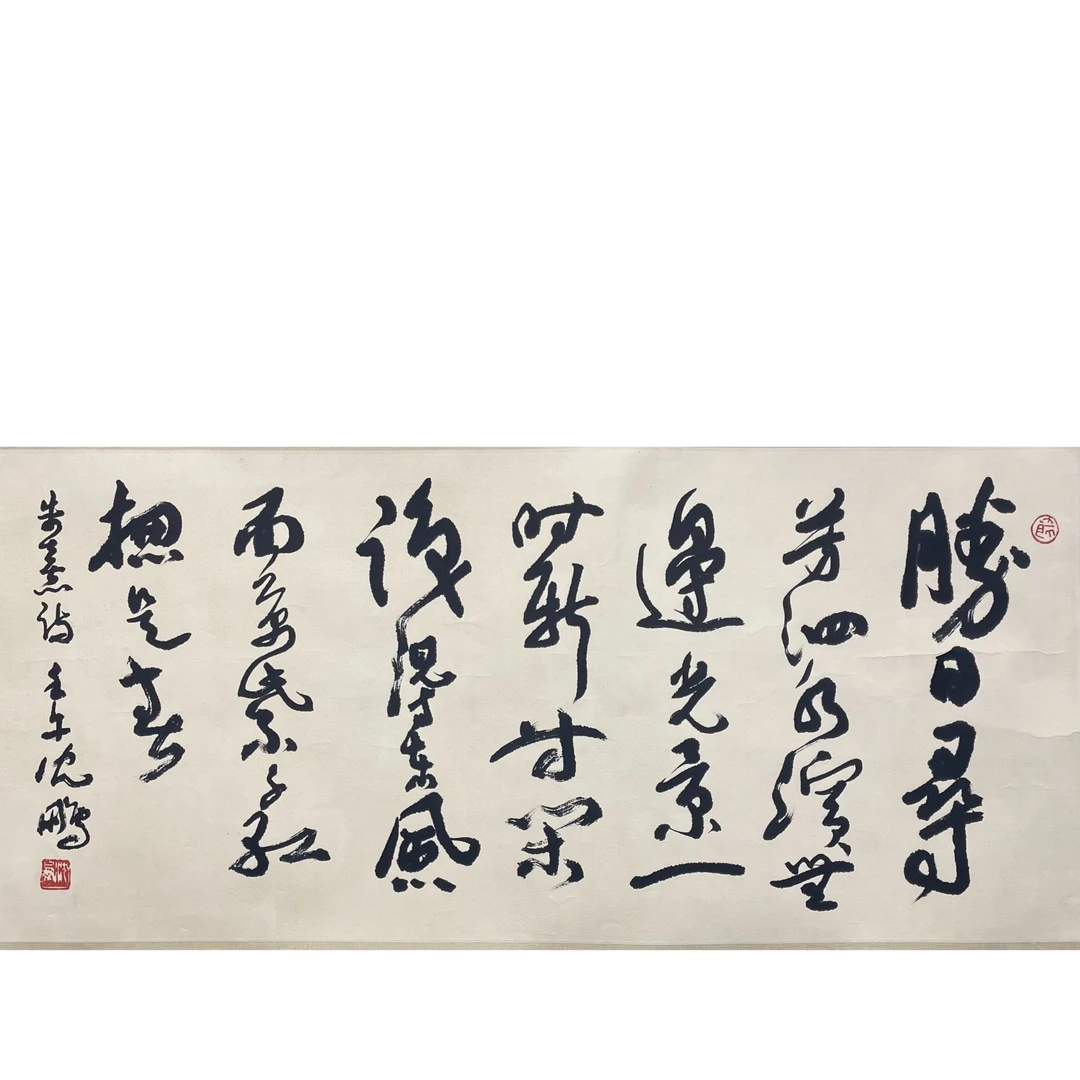 勝日尋
芳泗水濱無
邊光景一
時新等閑
識得東風
面萬紫千紅
摠是春
朱熹詩 壬午沈鵬
沈鵬